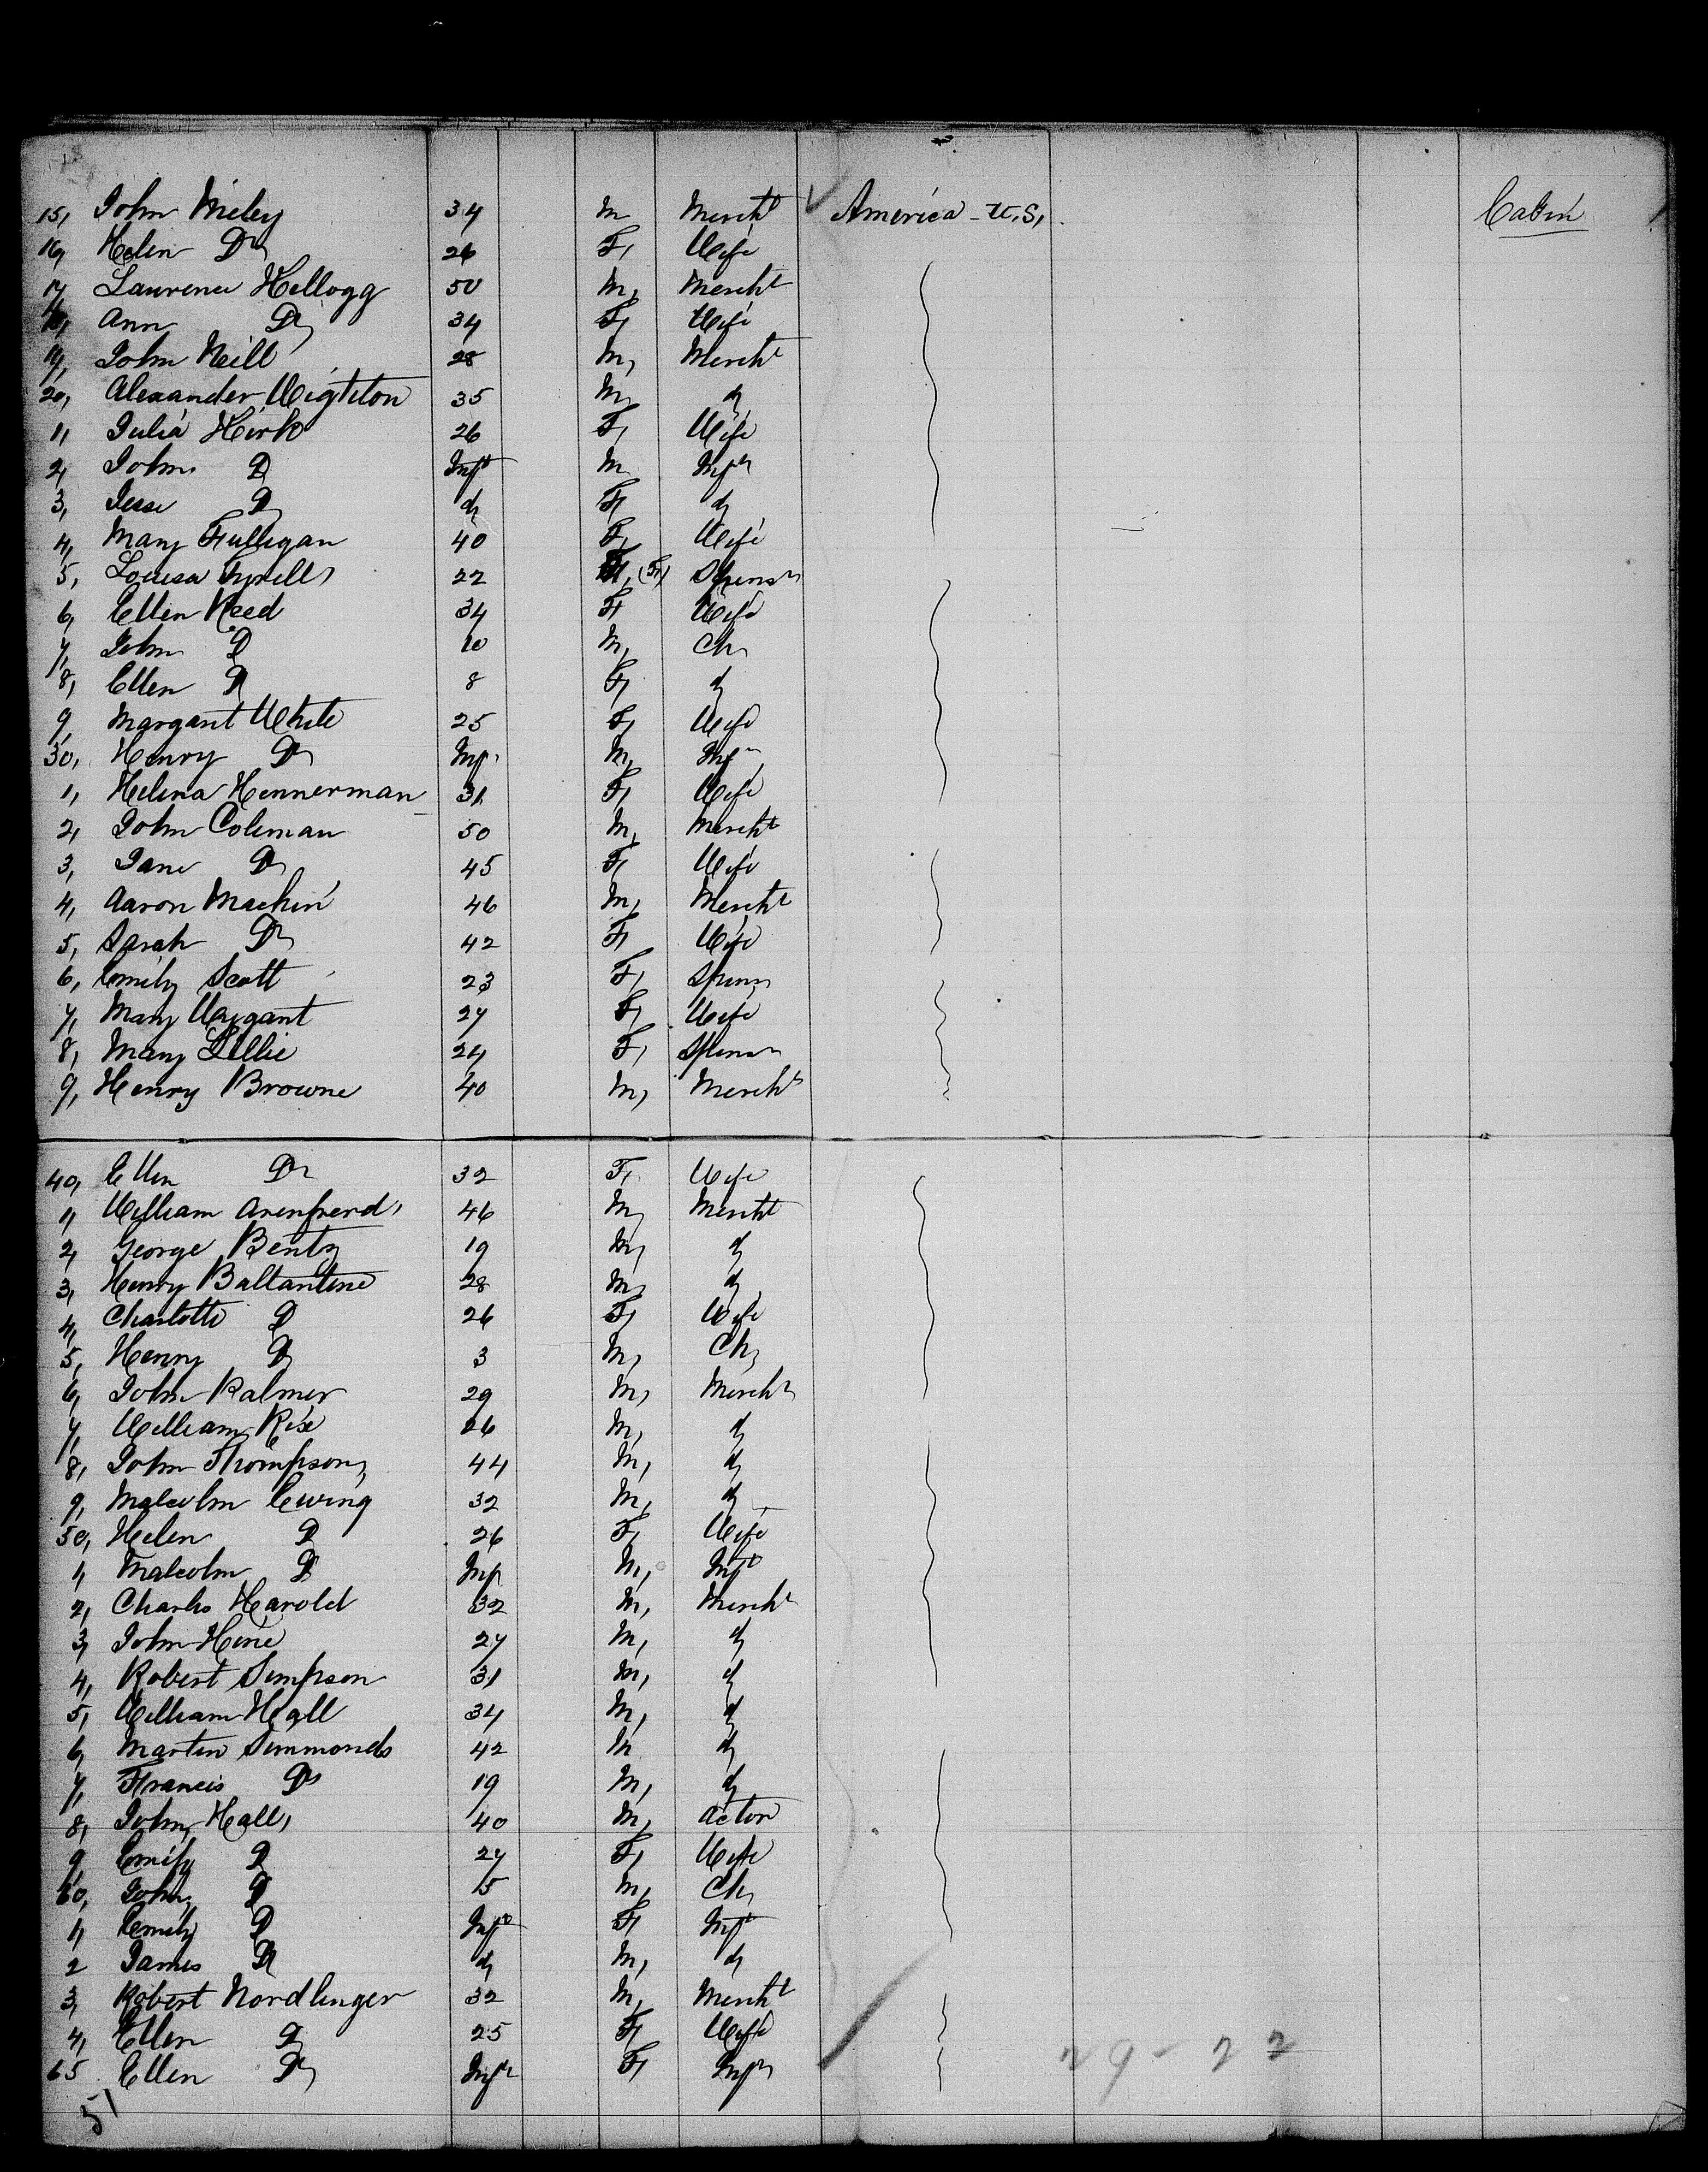 15, John Mieley 34 M Mercht America - U,S, Cabin
16, Helen Do 26 F, Wife
17, Laurence Kellogg 50 M, Mercht
18, Ann Do 34 F, Wife
19, John Neill 28 M, Mercht
20, Alexander Wigtiton 35 M, do
1, Julia Kirk 26 F, Wife
2, John D Inft M Infn
3, Jesse D do F, do
4, Mary Fulligan 40 F, Wife
5, Louisa Tyrell, 22 (F,) Spinsr
6, Ellen Reed 34 F, Wife
7, John D 10 M, Ch,
8, Ellen D 8 F, do
9, Margaret White 25 F, Wife
30, Henry Do Inf. M, Infn
1, Helena Hennerman 31 F, Wife
2, John Coleman 50 M, Mercht
3, Jane Do 45 F, Wife
4, Aaron Machin 46 M, Mercht
5, Sarah Do 42 F, Wife
6, Emily Scott 23 F, Spinr
7, Mary Waygant 27 F, Wife
8, Mary Lillie 24 F, Spinsr
9, Henry Browne 40 M, Mercht
40, Ellen Do 32 F, Wife
1, William Arenfrend, 46 M, Mercht
2, George Bentz 19 M, do
3, Henry Ballantine 28 M, do
4, Charlotte D 26 F, Wife
5, Henry D 3 M, Ch,
6, John Palmer 29 M, Mercht
7, William Rix 26 M, do
8, John Thompson, 44 M, do
9, Malcolm Ewing 32 M, do
50, Helen D 26 F, Wife
1, Malcolm D Inf M, Inft
2, Charles Harold 32 M, Mercht
3, John Hine 27 M, do
4, Robert Simpson 31 M, do
5, William Hall 34 M, do
6, Martin Simmonds 42 M do
7, Francis Do 19 M, do
8, John Hall, 40 M, Actor
9, Emily D 27 F, Wife
60, John, D 5 M, Ch,
1, Emily D Inft F, Inft
2 James D do M, do
3, Robert Nordlinger 32 M, Mercht
4, Ellen D 25 F, Wife
65 Ellen Do Infn F, Infn
51
29-22